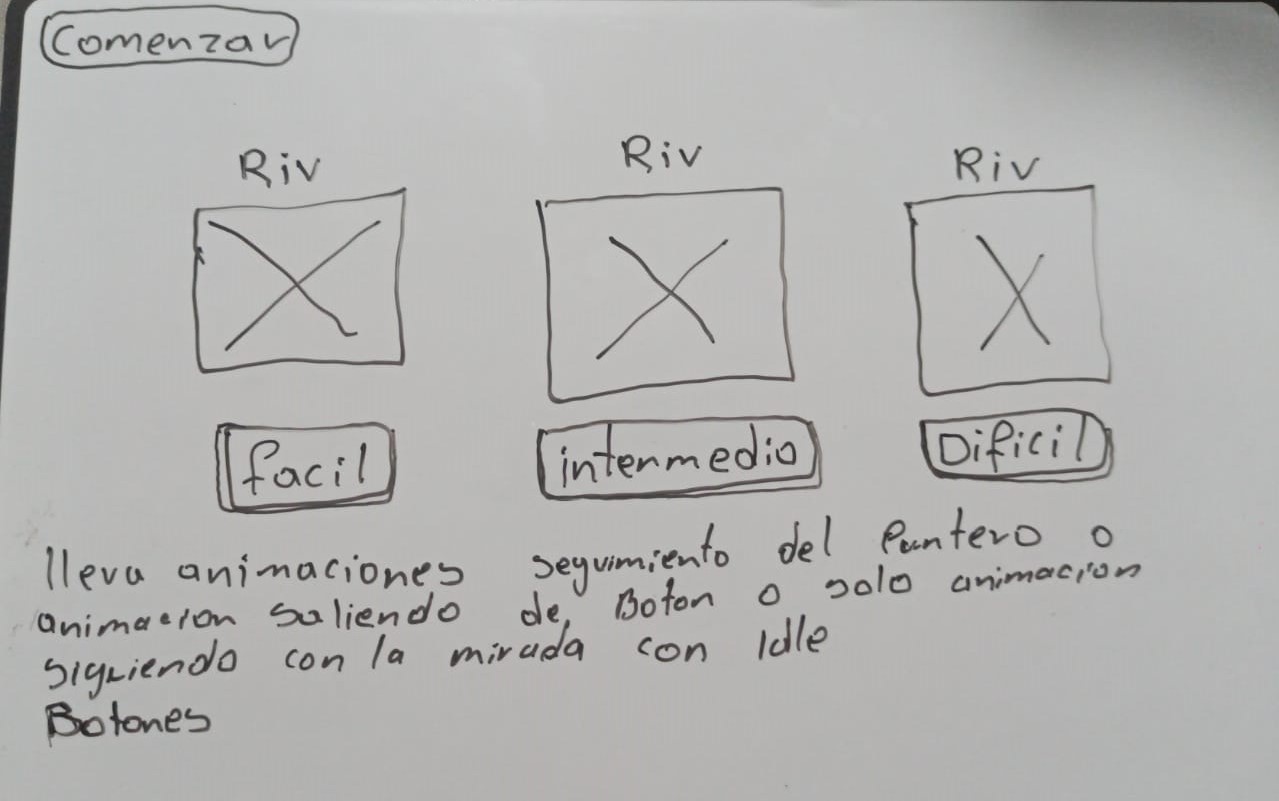 Comenzar
Riv Riv Riv
facil intermedio Dificil
lleva animaciones seguimiento del Puntero o
animacion saliendo de Boton o solo animacion
siguiendo con la mirada con Idle
Botones